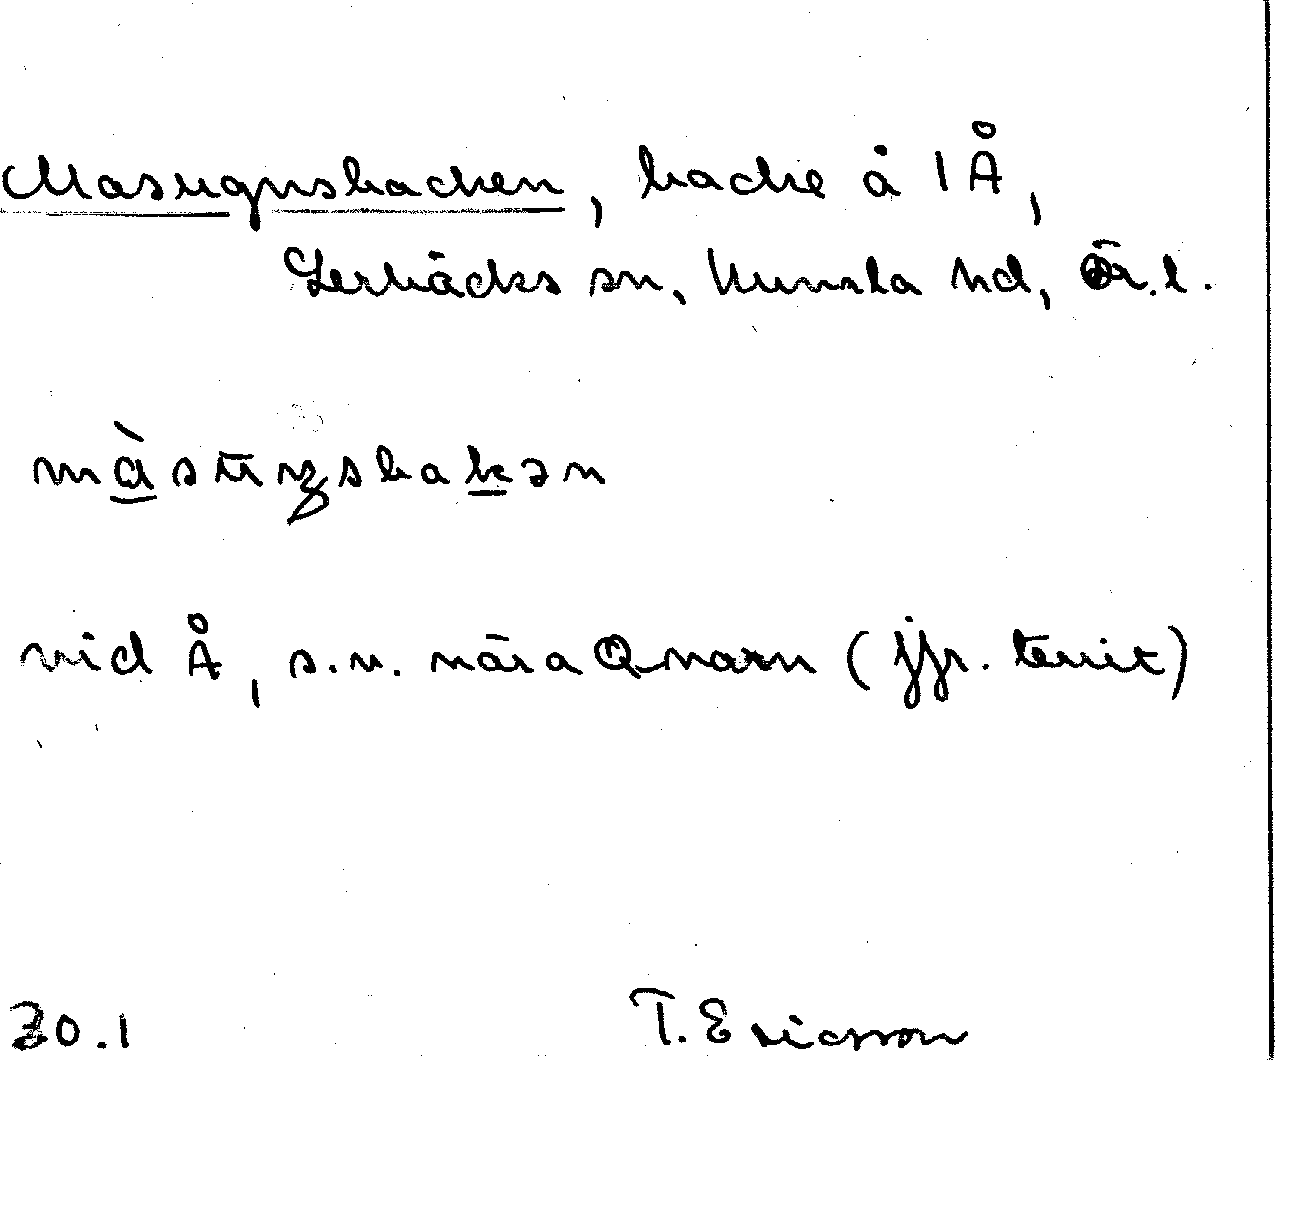 Masugnsbacken, backe å 1 Å,
Lerbäcks sn, Kumla hd, Ör.l.
mà̱sūŋsbaḵən
vid Å, s.v. nära Qvarn (jfr. territ)
30.1 T. Ericsson